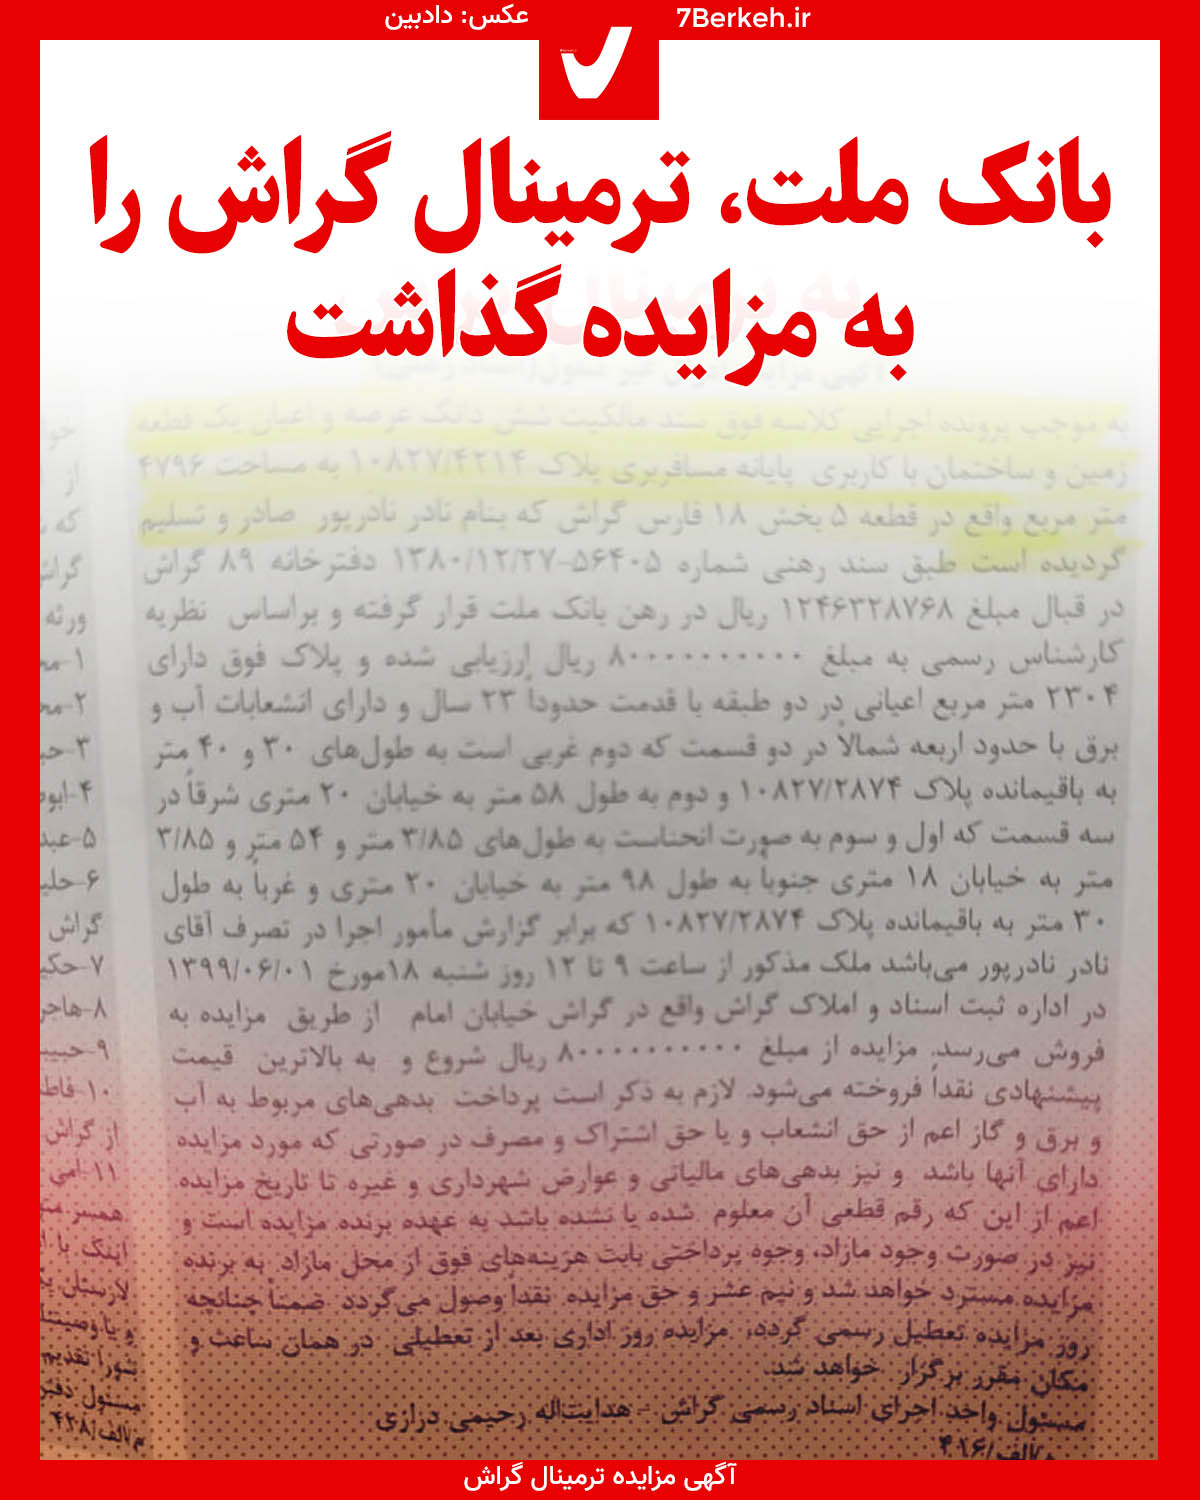 عکس: دادبین
7Berkeh.ir
بانک ملت، ترمینال گراش را
به مزایده گذاشت
به موجب پرونده اجرایی کلاسه فوق سند مالکیت شش دانگ عرصه و اعیان یک قطعه
زمین و ساختمان با کاربری پایانه مسافربری پلاک ۱۰۸۲۷/۴۲۱۴ به مساحت ۴۷۹۶
متر مربع واقع در قطعه ۵ بخش ۱۸ فارس گراش که بنام نادر نادرپور صادر و تسلیم
گردیده است طبق سند رهنی شماره ۵۶۴۰۵-۱۳۸۰/۱۲/۲۷ دفترخانه ۸۹ گراش
در قبال مبلغ ۱۲۴۶۳۲۸۷۶۸ ریال در رهن بانک ملت قرار گرفته و براساس نظریه
کارشناس رسمی به مبلغ ۸۰۰۰۰۰۰۰۰۰۰ ریال ارزیابی شده و پلاک فوق دارای
۲۳۰۴ متر مربع اعیانی در دو طبقه با قدمت حدوداً ۲۳ سال و دارای انشعابات آب و
برق با حدود اربعه شمالاً در دو قسمت که دوم غربی است به طول‌های ۳۰ و ۴۰ متر
به باقیمانده پلاک ۱۰۸۲۷/۲۸۷۴ و دوم به طول ۵۸ متر به خیابان ۲۰ متری شرقاً در
سه قسمت که اول و سوم به صورت انحناست به طول‌های ۳/۸۵ متر و ۵۴ متر و ۳/۸۵
متر به خیابان ۱۸ متری جنوباً به طول ۹۸ متر به خیابان ۲۰ متری و غرباً به طول
۳۰ متر به باقیمانده پلاک ۱۰۸۲۷/۲۸۷۴ که برابر گزارش مأمور اجرا در تصرف آقای
نادر نادرپور می‌باشد ملک مذکور از ساعت ۹ تا ۱۲ روز شنبه ۱۸مورخ ۱۳۹۹/۰۶/۰۱
در اداره ثبت اسناد و املاک گراش واقع در گراش خیابان امام از طریق مزایده به
فروش می‌رسد. مزایده از مبلغ ۸۰۰۰۰۰۰۰۰۰۰ ریال شروع و به بالاترین قیمت
پیشنهادی نقداً فروخته می‌شود. لازم به ذکر است پرداخت بدهی‌های مربوط به آب
و برق و گاز اعم از حق انشعاب و یا حق اشتراک و مصرف در صورتی که مورد مزایده
دارای آنها باشد و نیز بدهی‌های مالیاتی و عوارض شهرداری و غیره تا تاریخ مزایده
اعم از این که رقم قطعی آن معلوم شده یا نشده باشد به عهده برنده مزایده است و
نیز در صورت وجود مازاد، وجوه پرداختی بابت هزینه‌های فوق از محل مازاد به برنده
مزایده مسترد خواهد شد و نیم عشر و حق مزایده نقداً وصول می‌گردد ضمناً چنانچه
روز مزایده تعطیل رسمی گردد، مزایده روز اداری بعد از تعطیلی در همان ساعت و
مکان مقرر برگزار خواهد شد.
مسئول واحد اجرای اسناد رسمی گراش - هدایت‌اله رحیمی درازی
الف/۴۱۶
از
گراش
ورثه
گراش
از گراش
همسر
اینک با
و یا وصیتنا
شورا تقدیم
مسئول دفتر
م/الف/۴۲۸
آگهی مزایده ترمینال گراش